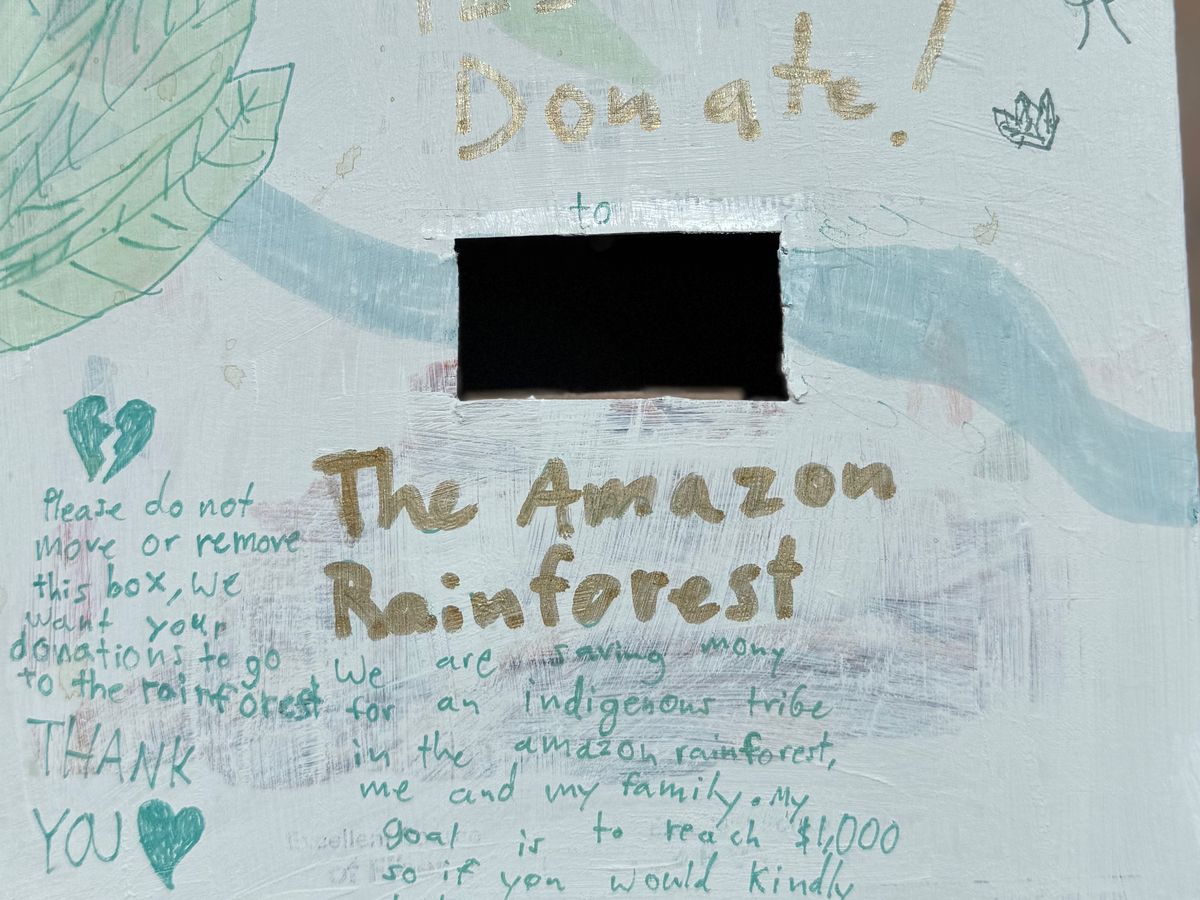 Donate!
to
The Amazon
Rainforest
Please do not
move or remove
this box, We
want your
donations to go
to the rainforest
THANK
YOU
We are saving mony
for an indigenous tribe
in the amazon rainforest,
me and my family. My
goal is to reach $1,000
so if you would kindly